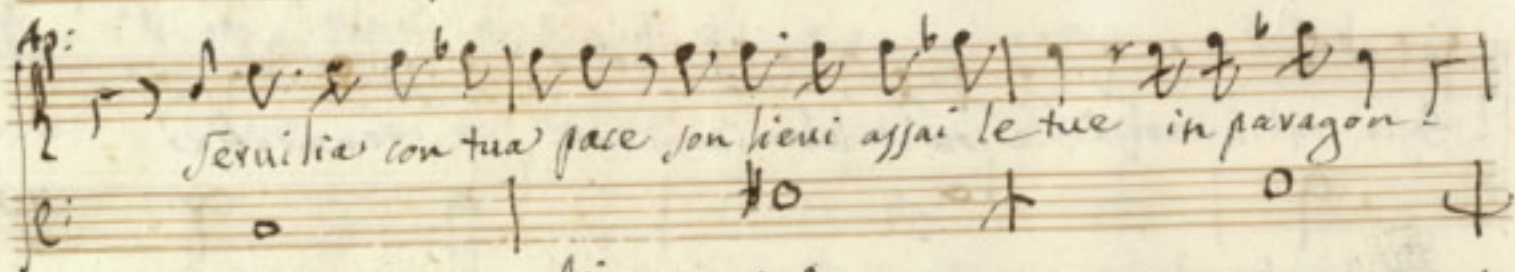 Ap:
Seruilia con tua pace son lieui assai le tue in paragon